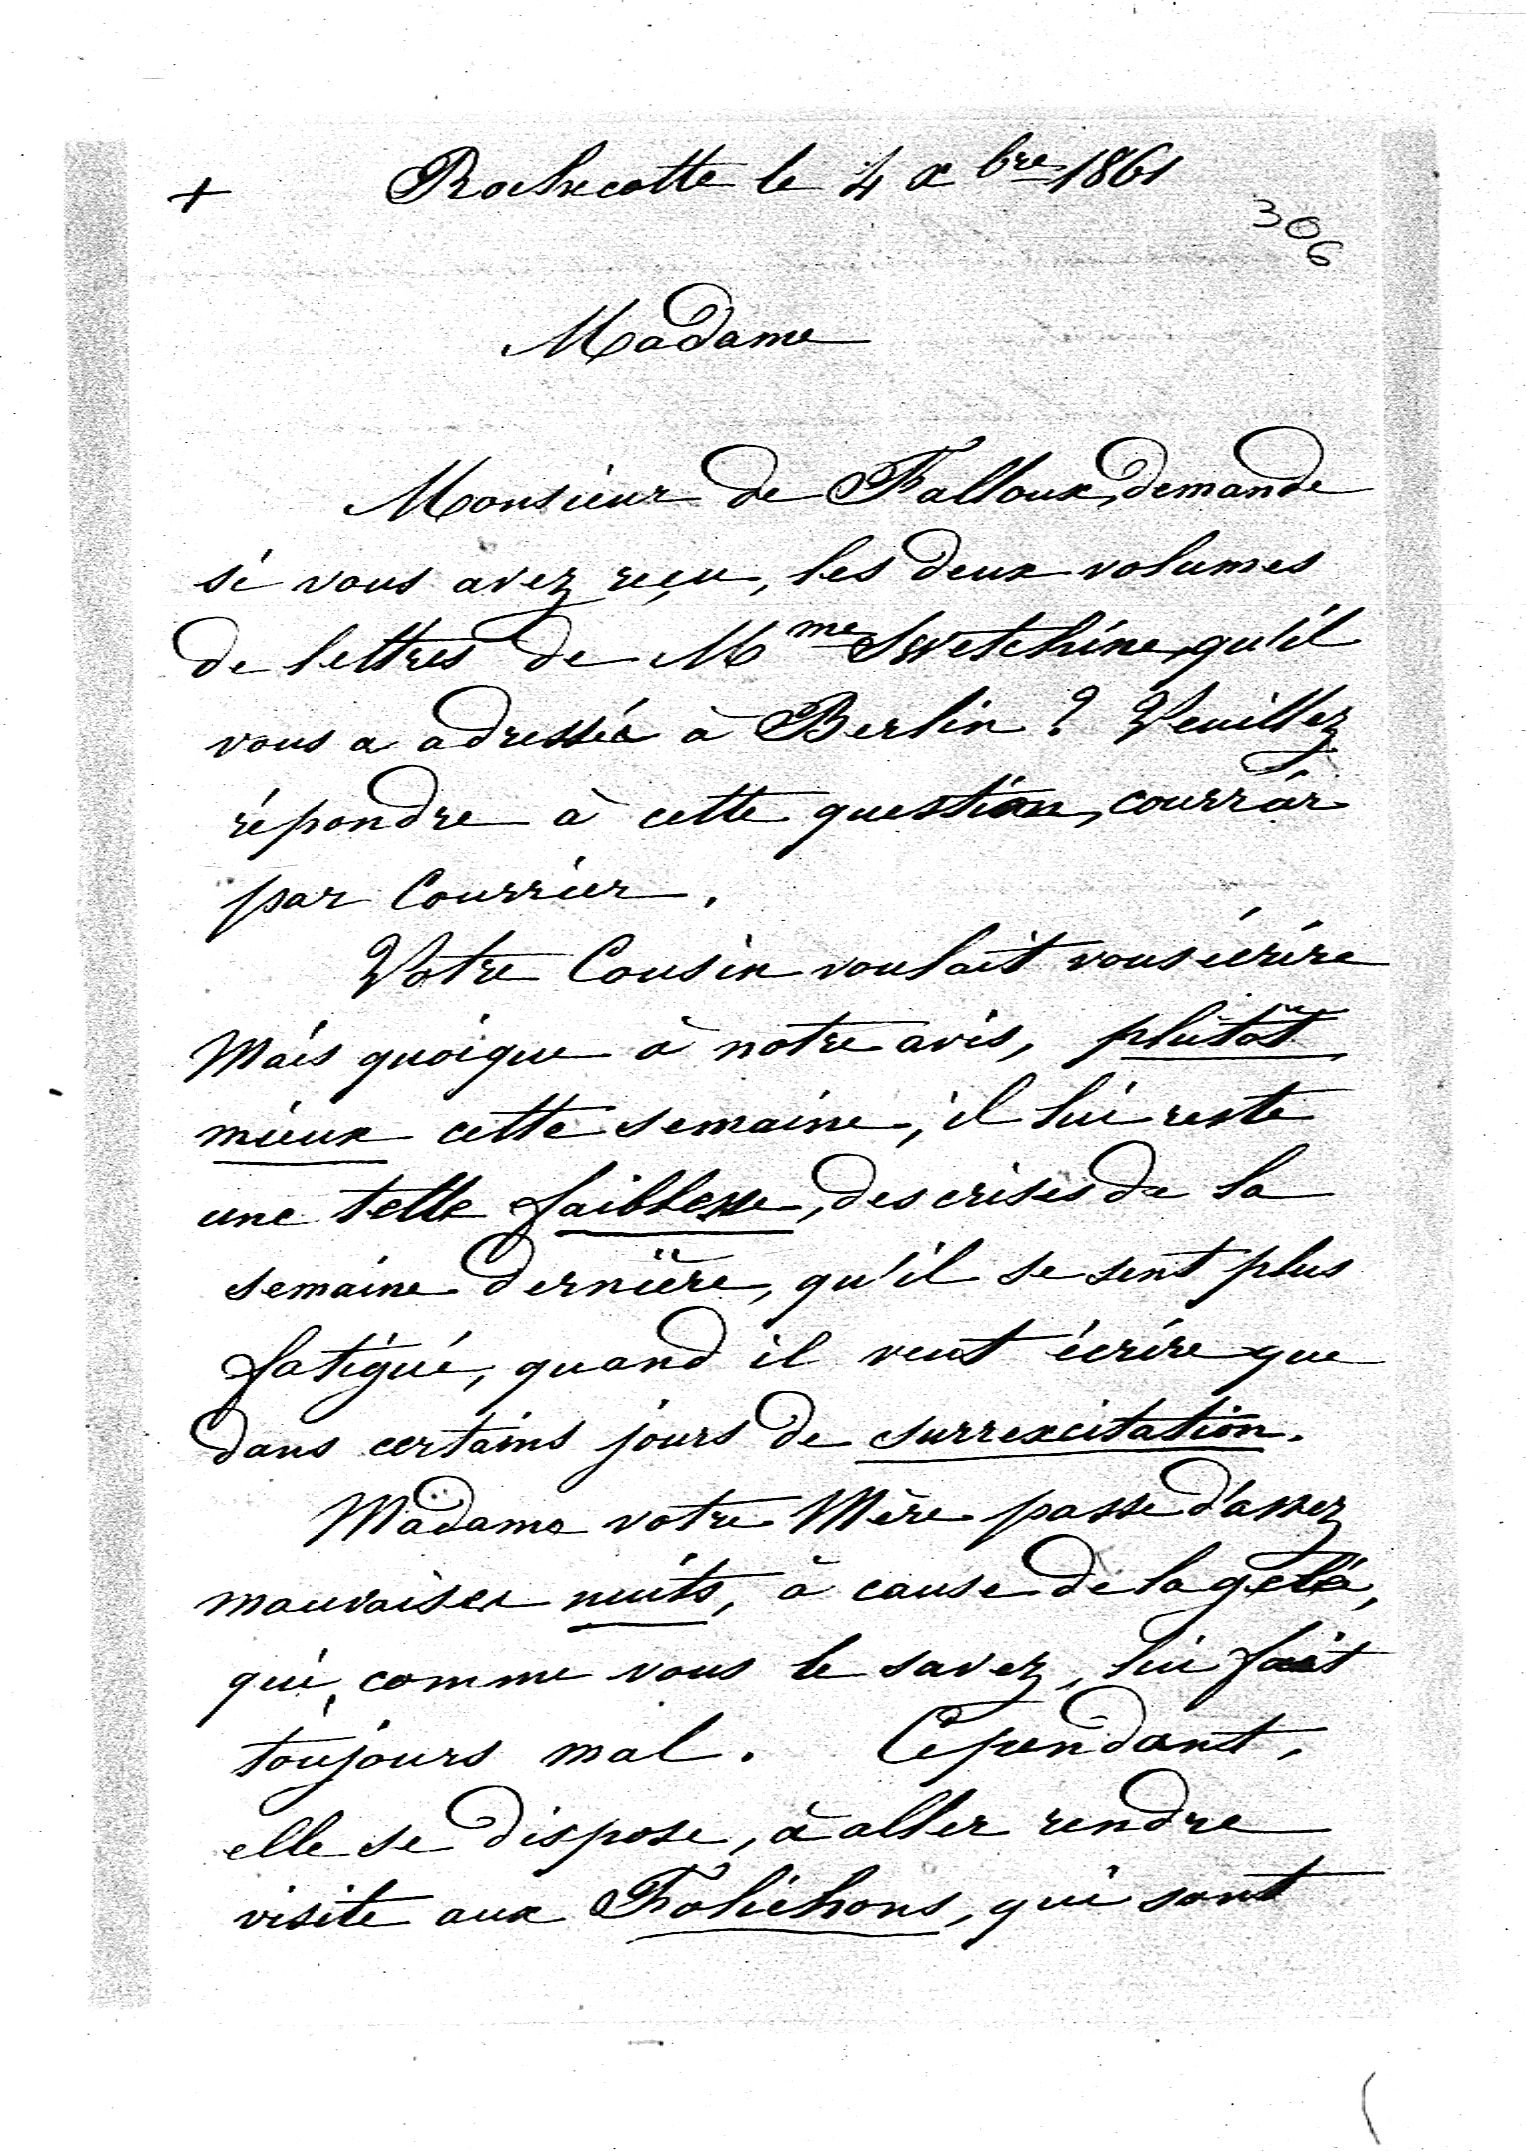 + Rochecotte le 4 xbre 1861
306
Madame
Monsieur de Falloux, demande
si vous avez reçu, les deux volumes
de lettres de Mme Swetchine, qu'il
vous a adressés à Berlin ? Veuillez
répondre à cette question, courrier
par Courrier.
Votre Cousin voulait vous écrire
Mais quoique à notre avis, plutôt
mieux cette semaine, il lui reste
une telle faiblesse, des crises de la
semaine dernière, qu'il se sent plus
fatigué, quand il veut écrire que
dans certains jours de surrexcitation.
Madame votre Mère passe d'assez
mauvaises nuits, à cause de la gelée,
qui, comme vous le savez, lui fait
toujours mal. Cependant,
elle se dispose, à aller rendre
visite aux Folichons, qui sont